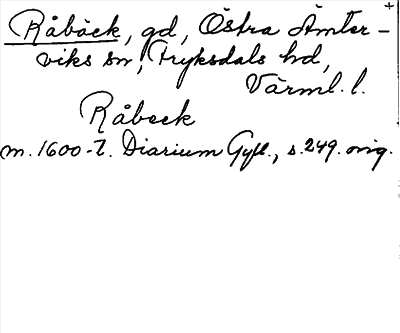 Råbäck, gd, Östra Ämter-
viks sn, Fryksdals hd,
Värml. l.
Råbeck
m. 1600-t. Diarium Gyll., s. 249. orig.